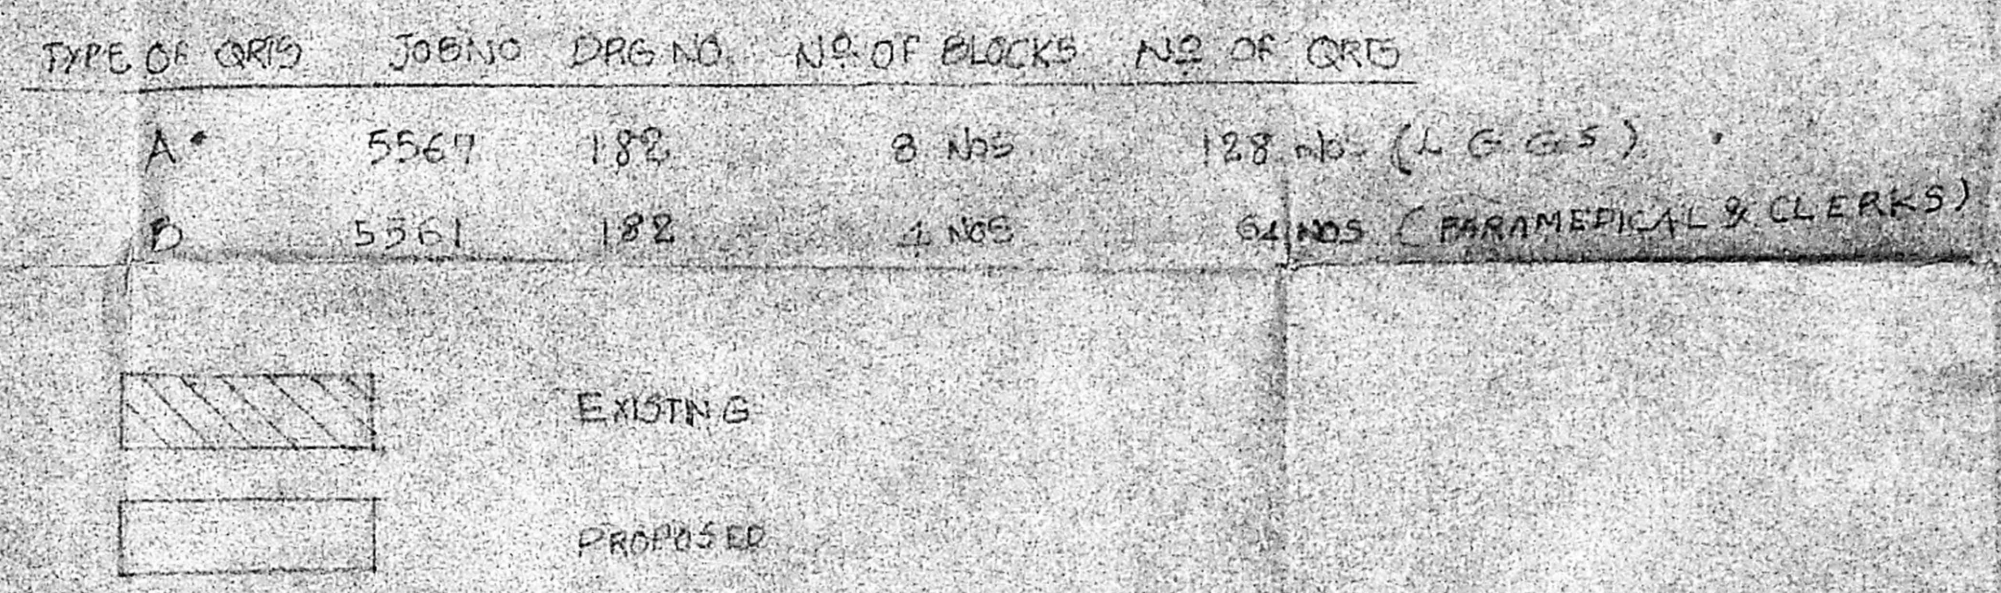 TYPE OF QRTS JOB NO DRG NO. Nº OF BLOCKS Nº OF QRTS
A 5567 182 8 Nos 128 Nos (L G G S)
B 5561 182 4 NOS 64 NOS (PARAMEDICAL & CLERKS)
EXISTING
PROPOSED